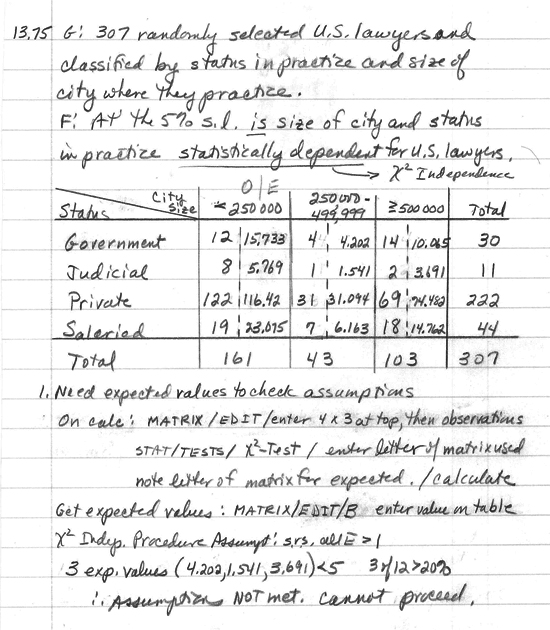 13.75 G: 307 randomly selected U.S. lawyers and
classified by status in practice and size of
city where they practice.
F: At the 5% s.l. is size of city and status
in practice statistically dependent for U.S. lawyers.
→ X² Independence
O | E
Status City Size < 250 000 250 000 - 499,999 ≥ 500 000 Total
Government 12 15.733 4 4.202 14 10.065 30
Judicial 8 5.769 1 1.541 2 3.691 11
Private 122 116.42 31 31.094 69 74.482 222
Salaried 19 23.075 7 6.163 18 14.762 44
Total 161 43 103 307
1. Need expected values to check assumptions
On calc: MATRIX / EDIT / enter 4 x 3 at top, then observations
STAT/TESTS/ X²-Test / enter letter of matrix used
note letter of matrix for expected. / calculate
Get expected values: MATRIX/EDIT/B enter value on table
X² Indep. Procedure Assumpt: s.r.s, all E > 1
3 exp. values (4.202, 1.541, 3.691) < 5 3 of 12 > 20%
∴ Assumptions NOT met. Cannot proceed.